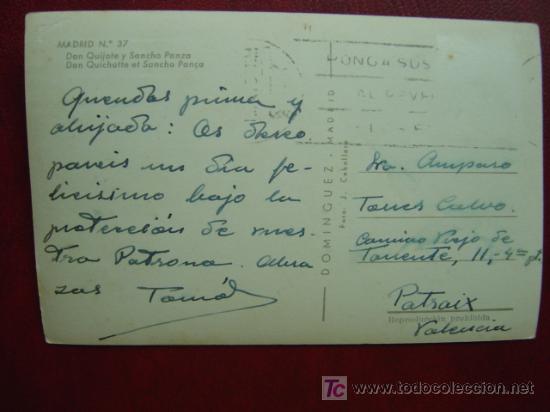 MADRID N.º 37
Don Quijote y Sancho Panza
Don Quichotte et Sancho Pança
Queridas prima y
ahijada: Os deseo
paseis un dia fe-
licisimo bajo la
protección de vues-
tra Patrona. Abra
zos Tomás
DOMINGUEZ - MADRID
Foto: J. Caballero
PONGA SUS
Sra. Amparo
Torres Calvo.
Camino Viejo de
Torrente, 11,-4ª
Patraix
Reproducción prohibida
Valencia
TC www.todocoleccion.net